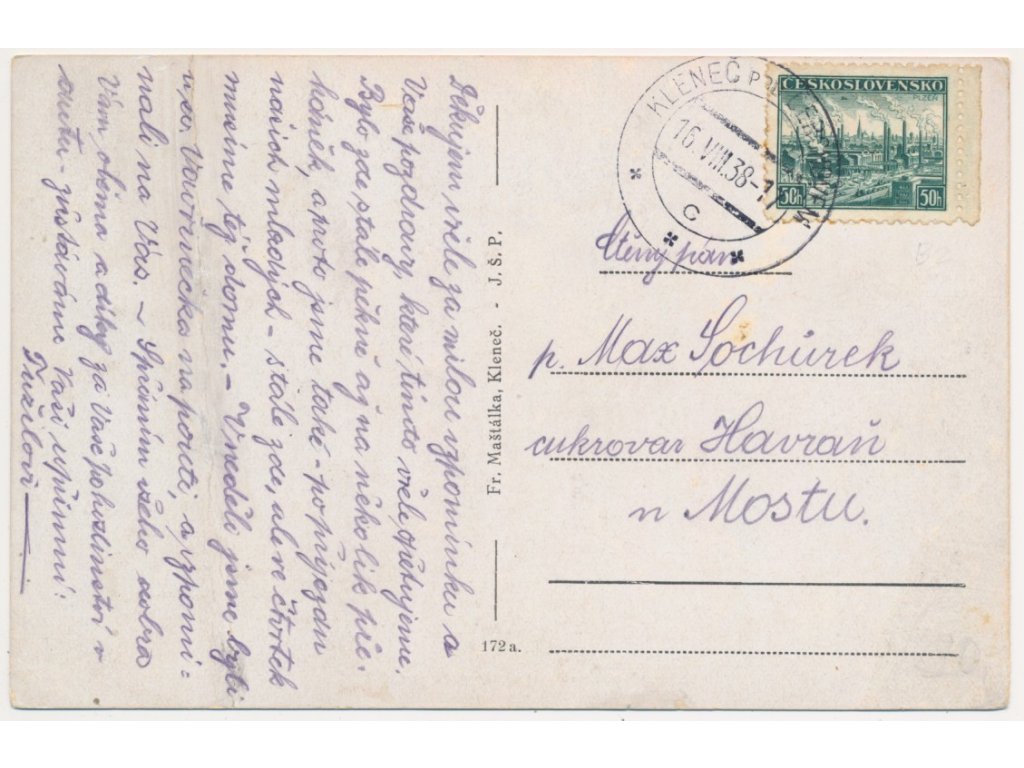 Děkujem vřele za milou vzpomínku a
Vaše pozdravy, které tímto vřele opětujeme.
Bylo zde stále pěkně až na několik pře-
háněk, a proto jsme také - po příjezdu
našich mladých - stále zde, ale ve čtvrtek
musíme též domů. - V neděli jsme byli
u sv. Vavřinečka na pouti, a vzpomí=
nali na Vás. - Spřáním všeho dobra
Vám oběma a díky za Vaše pohostinství v
zůstáváme Vaši upřímní:
Tužilovi
Fr. Maštálka, Kleneč. - J. Š. P.
172 a.
KLENEČ P
16.VIII.38-1
C
ČESKOSLOVENSKO
PLZEŇ
50h 50h
Ctěný pán
p. Max Sochůrek
cukrovar Havraň
n Mostu.